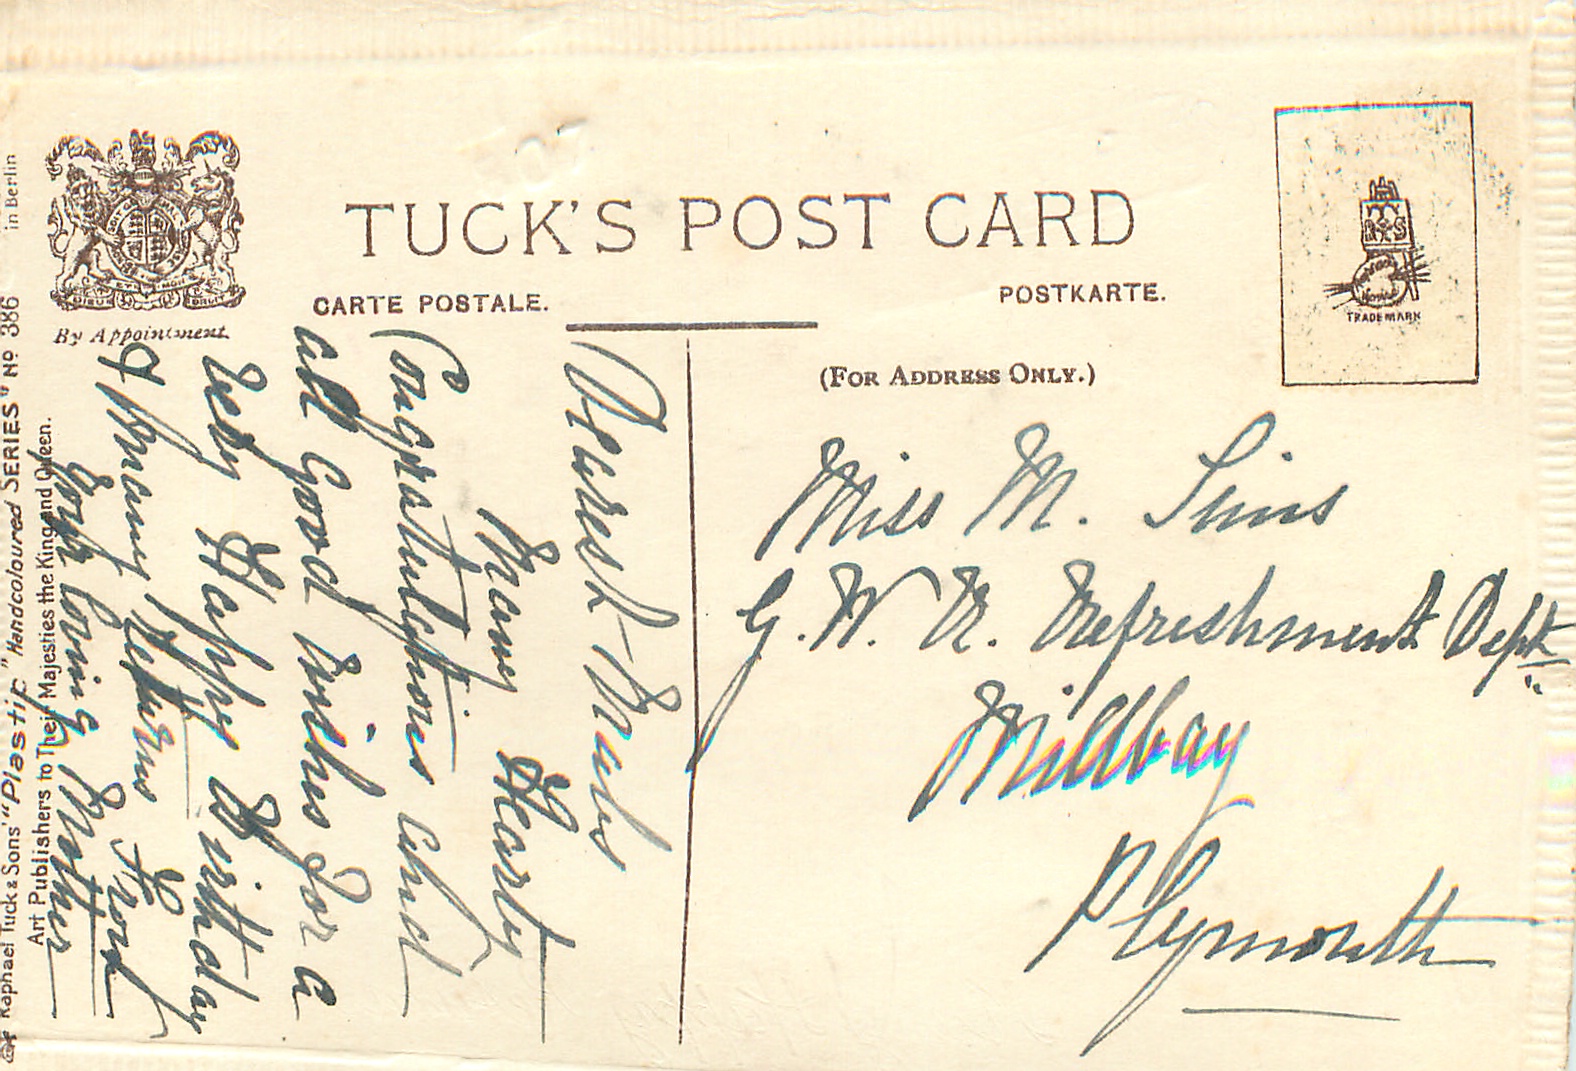 TUCK'S POST CARD
CARTE POSTALE.
POSTKARTE.
By Appointment.
(FOR ADDRESS ONLY.)
TRADE MARK
Miss M. Sims
G. W. R. Refreshment Dept
Millbay
Plymouth
Dearest Mabs
Many Hearty
Congratulations and
all Good wishes for a
Very Happy Birthday
& Many Returns From
Your loving Mother
Raphael Tuck & Sons' "Plastic" Handcoloured SERIES" No 386 in Berlin
Art Publishers to Their Majesties the King and Queen.